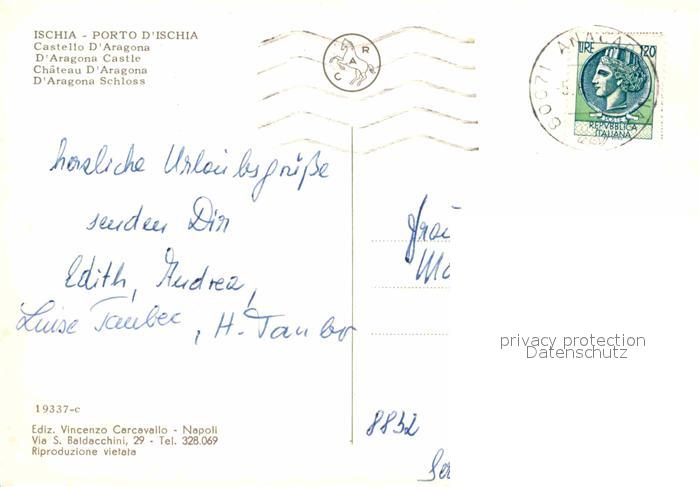 ISCHIA - PORTO D'ISCHIA
Castello D'Aragona
D'Aragona Castle
Château D'Aragona
D'Aragona Schloss
R
A
C
80071 ANACA
LIRE 120
REPVBBLICA
ITALIANA
herzliche Urlaubsgrüße
senden Dir
Edith, Andrea,
Luise Tauber, H. Tauber
Frau
privacy protection
Datenschutz
8832
19337-c
Ediz. Vincenzo Carcavallo - Napoli
Via S. Baldacchini, 29 - Tel. 328.069
Riproduzione vietata